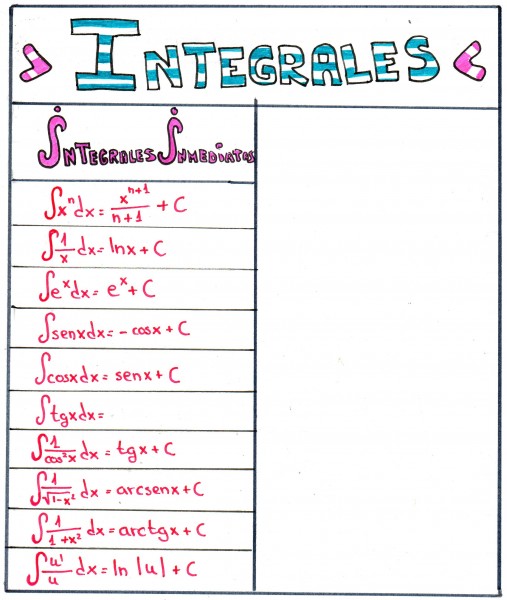 INTEGRALES
INTEGRALES INMEDIATAS
∫xⁿdx = xⁿ⁺¹/n+1 + C
∫1/x dx = lnx + C
∫eˣdx = eˣ + C
∫senxdx = -cosx + C
∫cosxdx = senx + C
∫tgxdx =
∫1/cos²x dx = tgx + C
∫1/√1-x² dx = arcsenx + C
∫1/1+x² dx = arctgx + C
∫u'/u dx = ln |u| + C